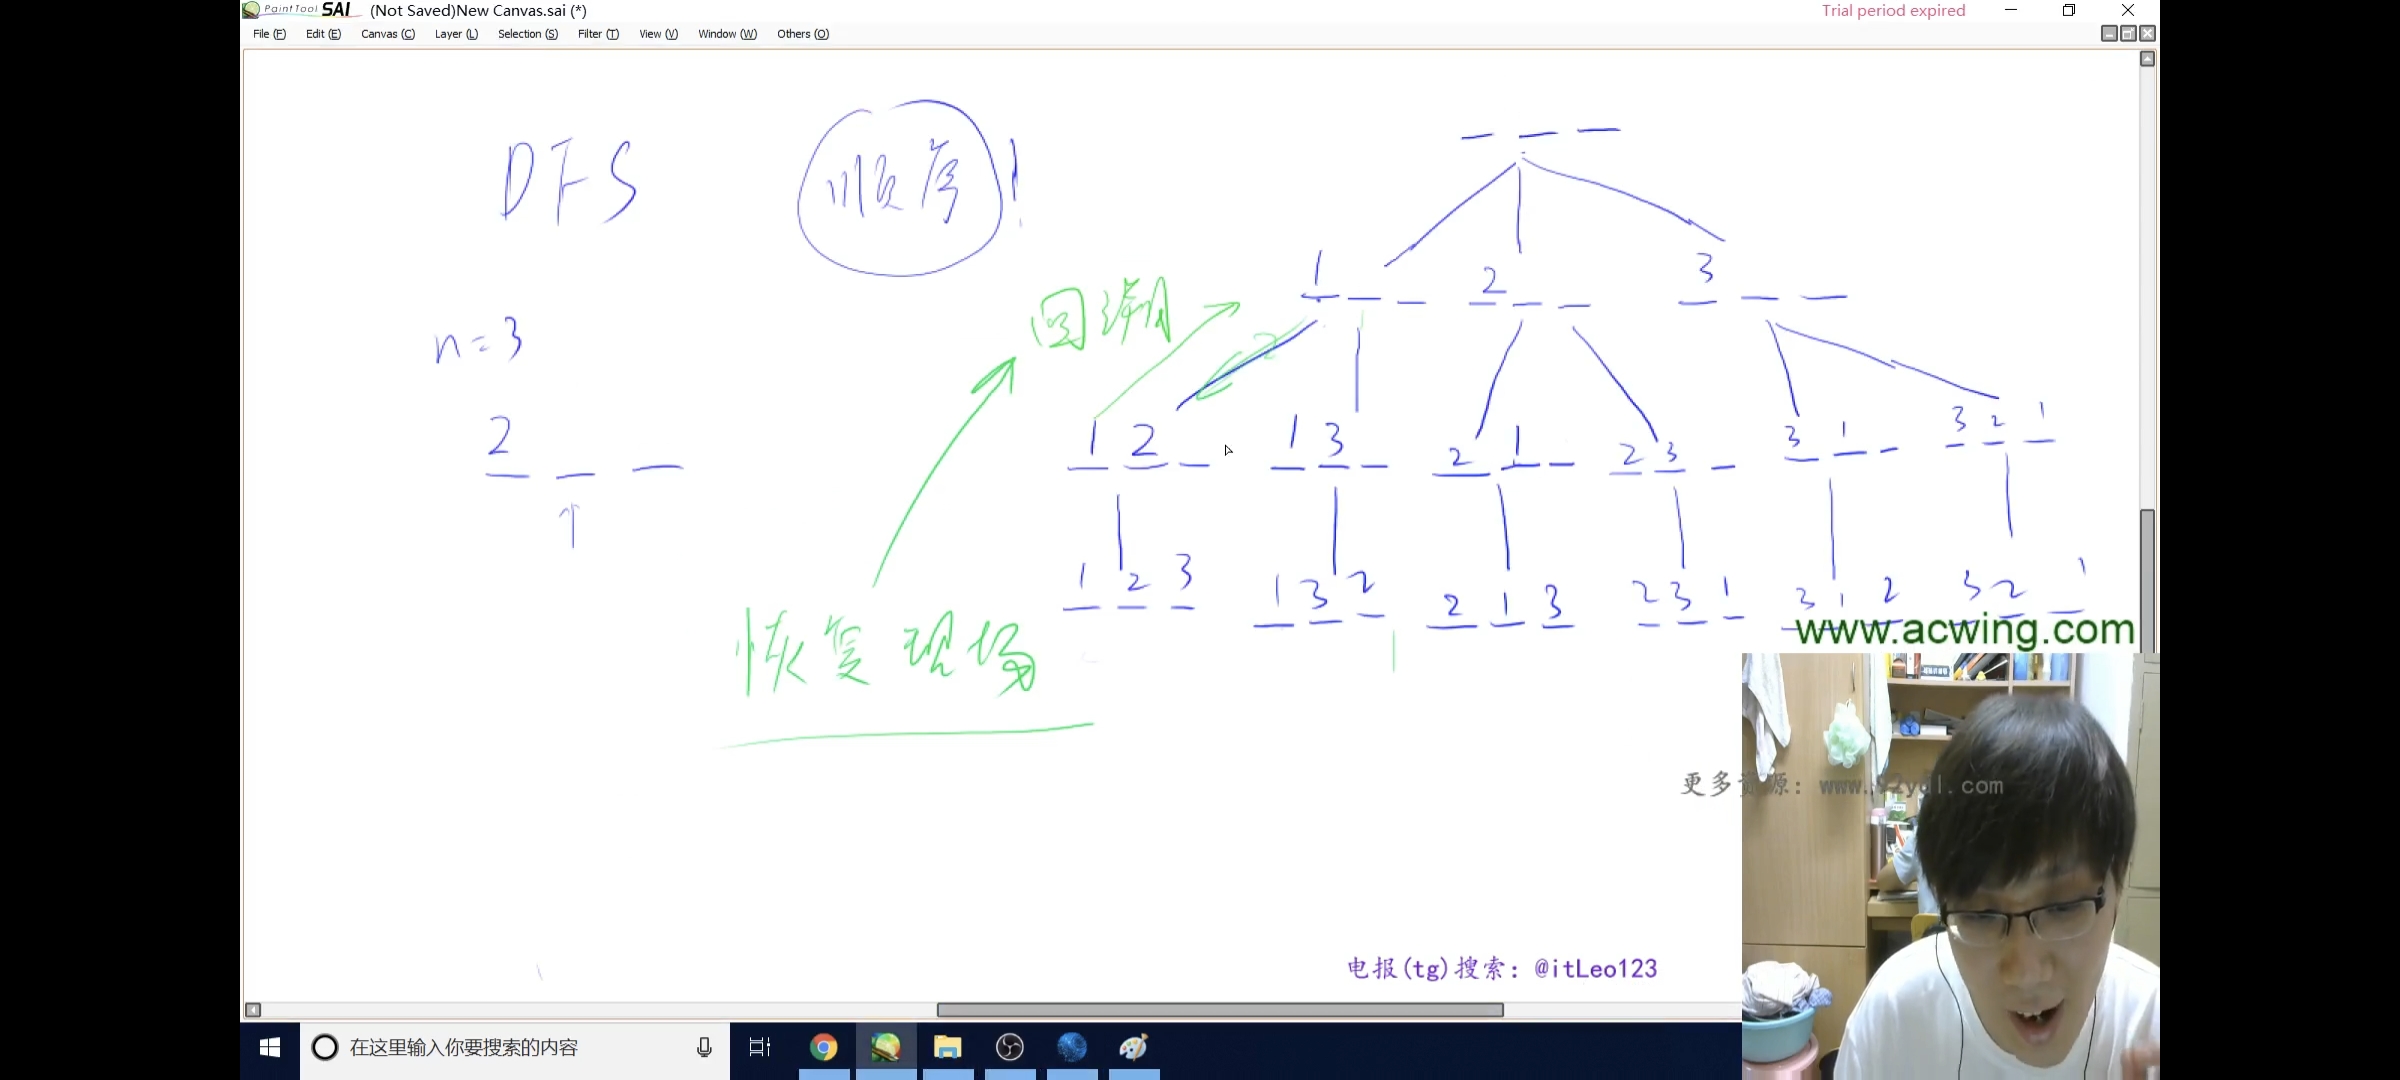 PaintTool SAI (Not Saved)New Canvas.sai (*) Trial period expired
File (F) Edit (E) Canvas (C) Layer (L) Selection (S) Filter (T) View (V) Window (W) Others (O)
DFS 顺序!
_ _ _
1 _ _ 2 _ _ 3 _ _
回溯
n=3
2
2 _ _
1 2 _ 1 3 _ 2 1 _ 2 3 _ 3 1 _ 3 2 1
↑
1 2 3 1 3 2 2 1 3 2 3 1 3 1 2 3 2 1
恢复现场
www.acwing.com
更多资源: www.
.com
电报(tg)搜索: @itLeo123
在这里输入你要搜索的内容